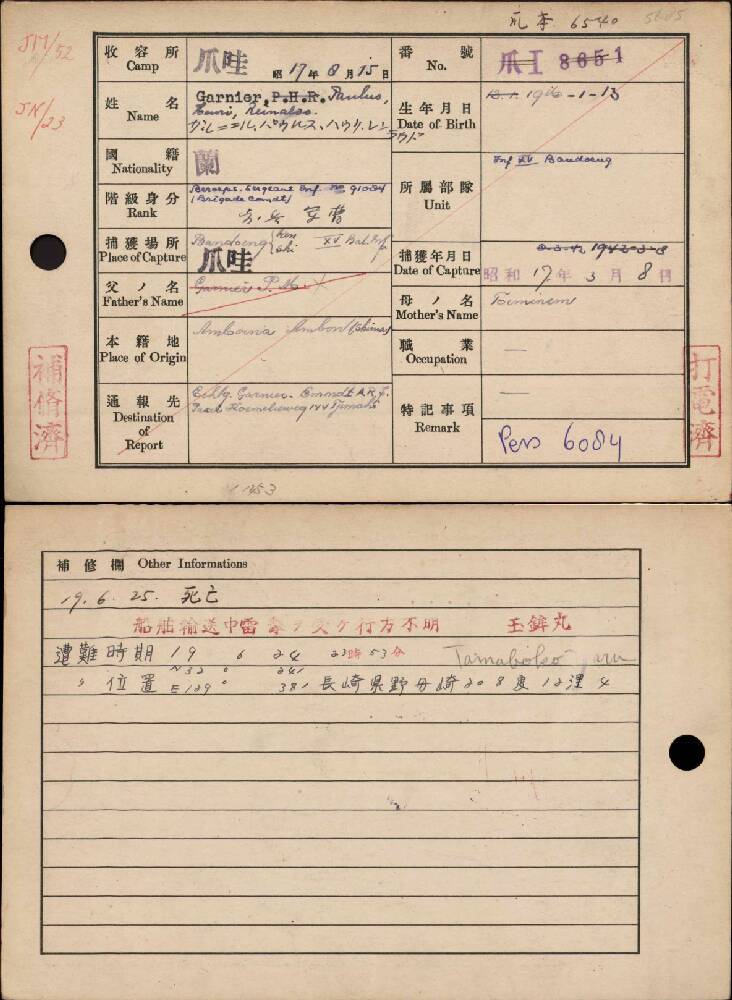 爪本 6540
5685
JM/52
JN/23
收容所 Camp
爪哇 昭17年8月15日
番號 No.
爪I 8651
姓名 Name
Garnier, P.H.R. Paulus,
Henri, Reinaldo.
ガルニエル、パウルス、ハウリ、レシ
生年月日 Date of Birth
1916-1-13
國籍 Nationality
蘭
階級身分 Rank
Beroeps. Sergeant Inf. No 91084
(Brigade Comdt)
所屬部隊 Unit
Inf XV Bandoeng
捕獲場所 Place of Capture
Bandoeng XV Bat. Inf
爪哇
捕獲年月日 Date of Capture
8-3-42 1942-3-8
昭和17年3月8日
父ノ名 Father's Name
Garnier P.M.
母ノ名 Mother's Name
本籍地 Place of Origin
Amboina Ambon
職業 Occupation
—
通報先 Destination of Report
Echtg. Garnier.
Tjimahi
特記事項 Remark
—
Pers 6084
補脩濟
打電濟
補修欄 Other Informations
19. 6. 25. 死亡
船舶輸送中雷撃ヲ受ケ行方不明 玉鉾丸
遭難時期 19 6 24 23時53分
〃 位置 N 32° 24′
E 129° 38′ 長崎県野母崎 208度 12浬 4